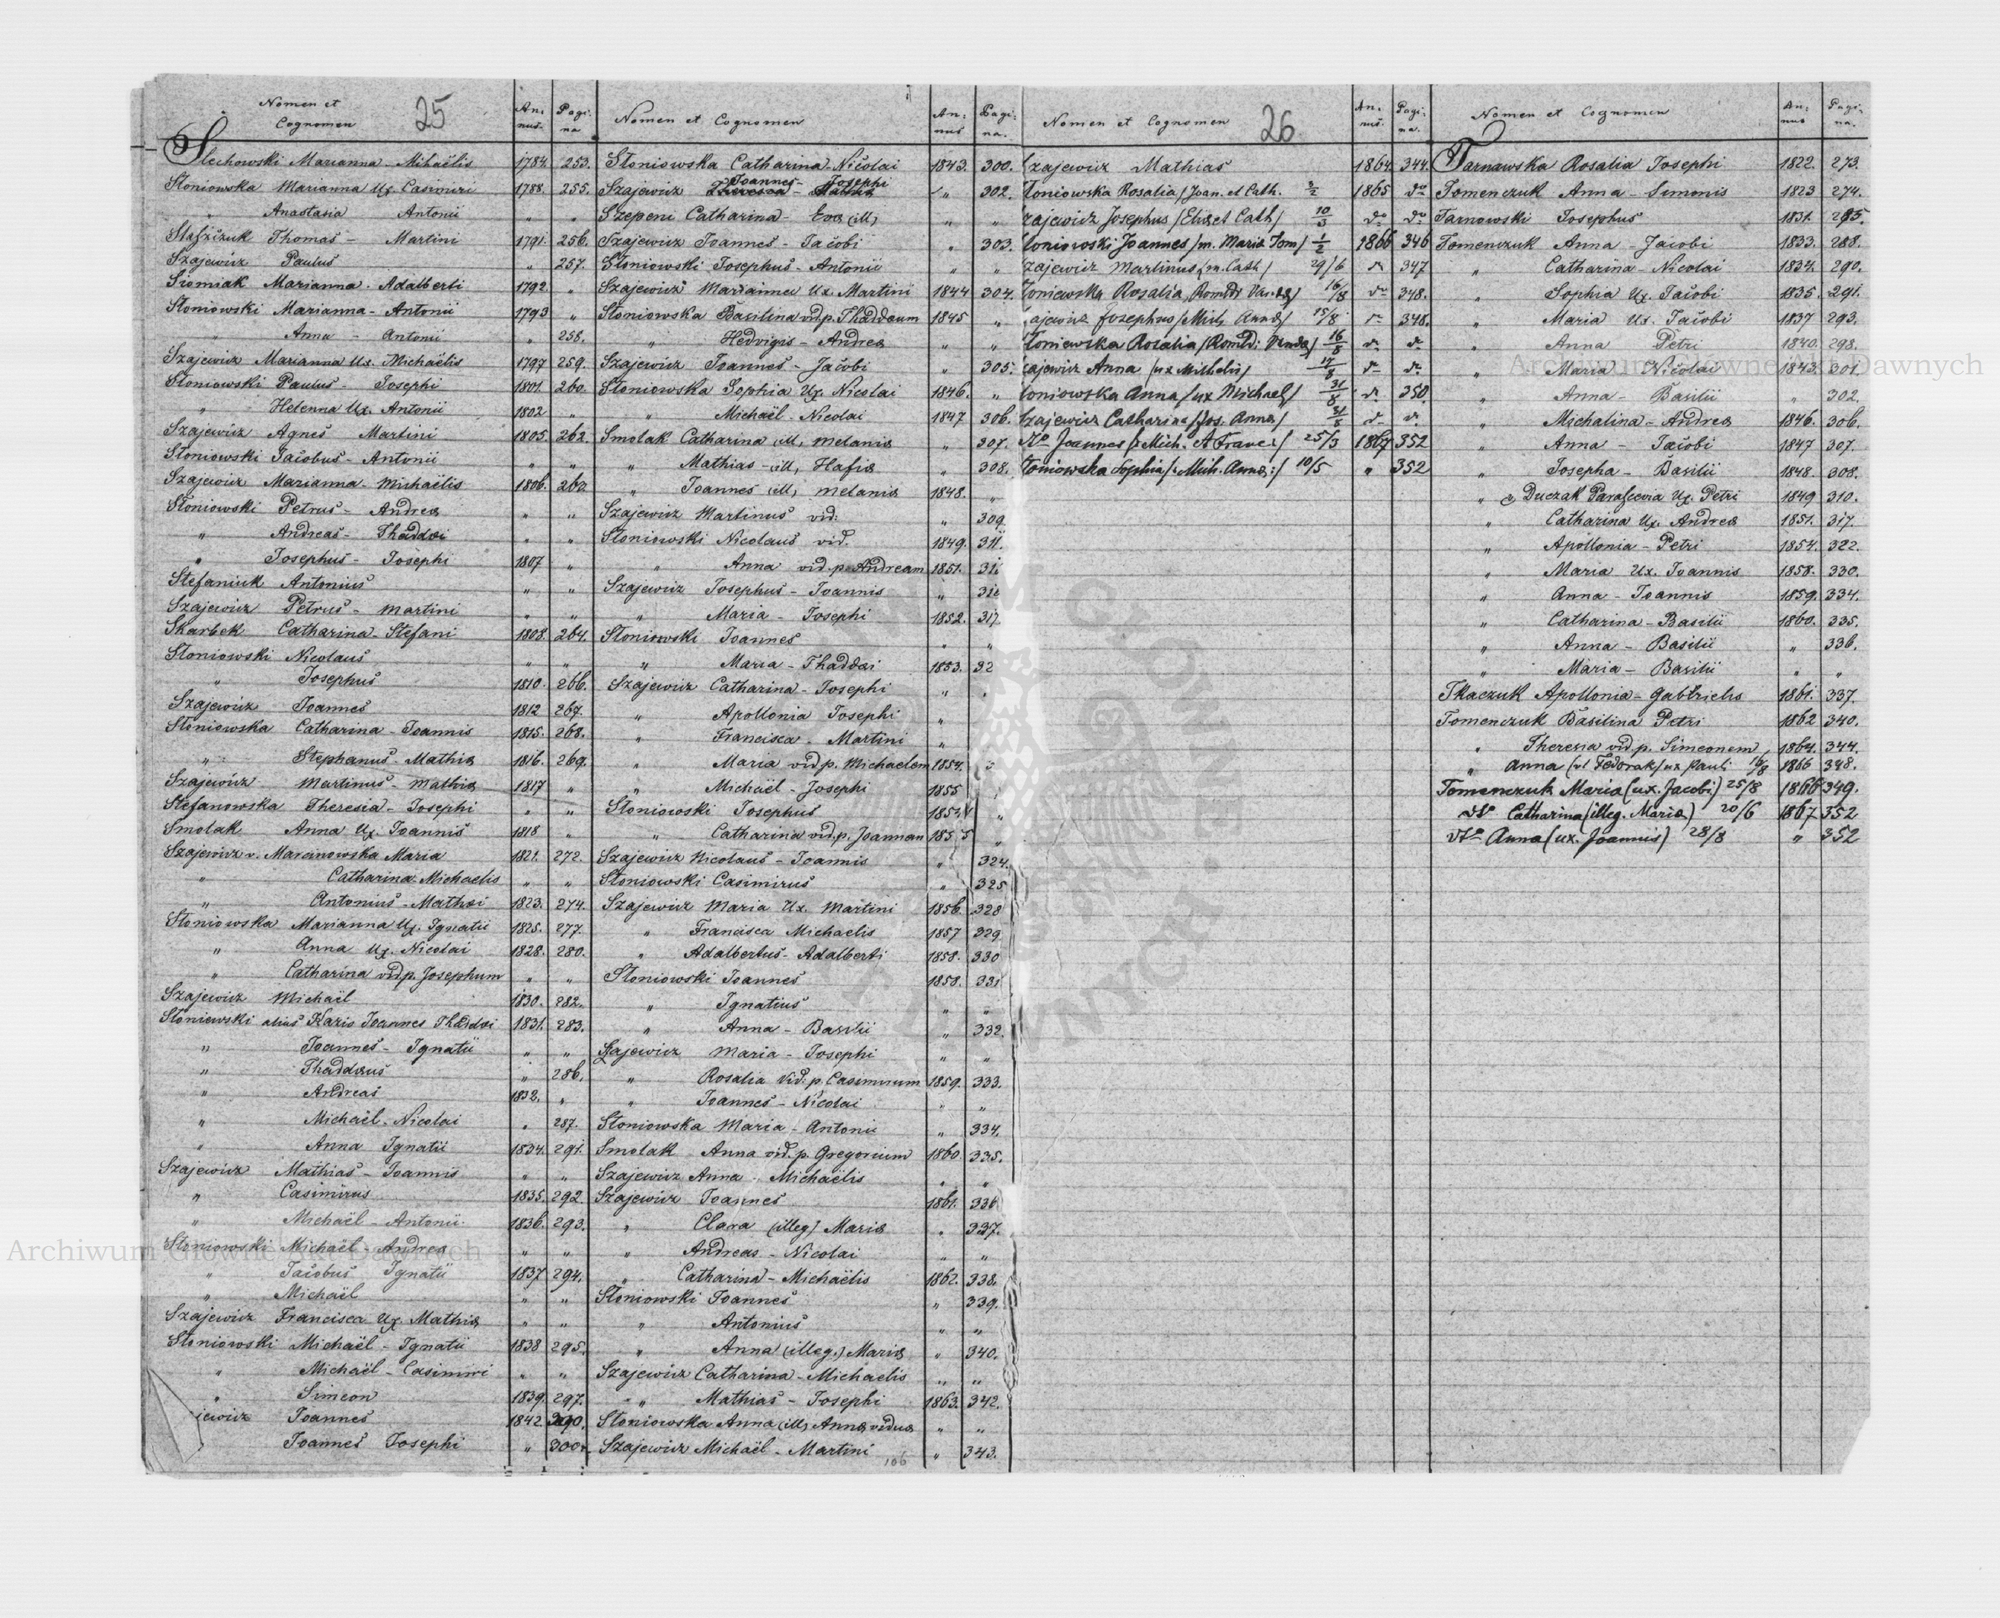 Nomen et Cognomen 25 Annus. Pagina
Slechowski Marianna - Mihaëlis 1784. 253.
Słoniowska Marianna Ux. Casimiri 1788. 255.
" Anastasia Antonii " "
Thomas - Martini 1791. 256.
Szajewicz Paulus " 257.
Siomiak Marianna - Adalberti 1792. "
Słoniowski Marianna - Antonii 1793 "
" Anna - Antonii " 258.
Szajewicz Marianna Ux. Michaëlis 1797 259.
Słoniowski Paulus - Josephi 1801. 260.
" Helenna Ux. Antonii 1802 "
Szajewicz Agnes Martini 1805. 262.
Słoniowski Jacobus - Antonii " "
Szajewicz Marianna - Michaëlis 1806. 262.
Słoniowski Petrus - Andreæ " "
" Andreas - Thaddæi " "
" Josephus - Josephi 1807 "
Stefaniuk Antonius " "
Szajewicz Petrus - Martini " "
Skarbek Catharina - Stefani 1808. 264.
Słoniowski Nicolaus " "
" Josephus 1810. 266.
Szajewicz Joannes 1812 267.
Słoniowska Catharina - Joannis 1815. 268.
" Stephanus - Mathiæ 1816. 269.
Szajewicz Martinus - Mathiæ 1817 "
Stefanowska Theresia - Josephi " "
Smolak Anna Ux. Joannis 1818 "
Szajewicz v. Marcinowska Maria 1821. 272.
" Catharina - Michaelis " "
" Antonius - Mathæi 1823. 274.
Słoniowska Marianna Ux. Ignatii 1825. 277.
" Anna Ux. Nicolai 1828. 280.
" Catharina vid. p. Josephum " "
Szajewicz Michaël 1830. 282.
Słoniewski alias Joannes Thaddæi 1831. 283.
" Joannes - Ignatii " "
" Thaddæus " 286.
" Andreas 1832. "
" Michaël - Nicolai " 287.
" Anna Ignatii 1834. 291.
Szajewicz Mathias - Joannis " "
" Casimirus 1835. 292
" Michaël - Antonii 1836. 293.
Słoniowski Michaël - Andreæ " "
" Jacobus Ignatii 1837 294.
" Michaël " "
Szajewicz Francisca Ux. Mathiæ " "
Słoniowski Michaël - Ignatii 1838 295.
" Michaël - Casimiri " "
" Simeon 1839. 297.
jewicz Joannes 1842
Joannes Josephi " 300.
Nomen et Cognomen Annus Pagina.
Słoniowska Catharina Nicolai 1843. 300.
Szajewicz Joannes - Josephi " 302.
Szepeni Catharina - Evæ (ill) " "
Szajewicz Joannes - Jacobi " 303.
Słoniowski Josephus - Antonii " "
Szajewicz Marianna Ux. Martini 1844 304.
Słoniowska Basilina vid. p. Thaddæum 1845 "
" Hedvigis - Andreæ " "
Szajewicz Joannes - Jacobi " 305.
Słoniowska Sophia Ux. Nicolai 1846. "
" Michaël - Nicolai 1847 306.
Smolak Catharina ill, Melaniæ " 307.
" Mathias - ill, Hafiæ " 308.
" Joannes ill, Melaniæ 1848. "
Szajewicz Martinus vid. " 309
Słoniowski Nicolaus vid. 1849. 311.
" Anna vid. p. Andream 1851.
Szajewicz Josephus - Joannis "
" Maria - Josephi 1852. 317
Słoniowski Joannes " "
" Maria - Thaddæi 1853. 32
Szajewicz Catharina - Josephi "
" Apollonia Josephi "
" Francisca - Martini "
" Maria vid p. Michaelem 1854.
" Michaël - Josephi 1855
Słoniowski Josephus "
" Catharina vid. p. Joannem "
Szajewicz Nicolaus - Joannis " 324.
Słoniowski Casimirus " 325
Szajewicz Maria Ux. Martini 1856. 328
" Francisca Michaelis 1857 329
" Adalbertus - Adalberti 1858. 330
Słoniowski Joannes 1858. 331
" Ignatius " "
" Anna - Basilii " 332
Szajewicz Maria - Josephi " "
" Rosalia vid. p. Casimirum 1859. 333.
" Joannes - Nicolai " "
Słoniowska Maria - Antonii " 334.
Smolak Anna vid. p. Gregorium 1860 335.
Szajewicz Anna - Michaëlis " "
Szajewicz Joannes 1861. 336
" Clara (illeg) Mariæ " 337.
" Andreas - Nicolai " "
" Catharina - Michaëlis 1862. 338.
Słoniowski Joannes " 339.
" Antonius " "
" Anna (illeg.) Mariæ " 340.
Szajewicz Catharina - Michaelis " "
" Mathias - Josephi 1863. 342.
Słoniowska Anna (ill, Annæ viduæ " "
Szajewicz Michaël - Martini " 343.
106
Nomen et Cognomen 26 Annus. Pagina.
zajewicz Mathias 1864. 344.
łoniowska Rosalia /Joan. et Cath. 3/2 1865 dto
zajewicz Josephus /Eliæ et Cath/ 10/3 dto dto
łoniowski Joannes /m. Maria Tom/ 1/2 1866 346
zajewicz Martinus /m. Cath/ 29/6 dto 347
łoniewska Rosalia 16/8 dto 348.
ajewicz Josephus /Mich. Annæ/ 15/8 dto 348.
łoniewska Rosalia 16/8 dto dto
ajewicz Anna /ux Michælis/ 17/8 dto dto
łoniowska Anna /ux Michael/ 31/8 dto 350.
zajewicz Catharina /Jos. Annæ/ 31/8 dto dto
dto Joannes 25/3 1867 352
łoniowska Sophia /:Mich. Annæ:/ 10/5 " 352
Nomen et Cognomen Annus Pagina.
Tarnawska Rosalia Josephi 1822. 273.
Tomenczuk Anna - Simonis 1823 274.
Tarnowski Josephus 1831. 285.
Tomenczuk Anna - Jacobi 1833. 288.
" Catharina - Nicolai 1834. 290.
" Sophia Ux. Jacobi 1835. 291.
" Maria Ux. Jacobi 1837 293.
" Anna Petri 1840. 298.
" Maria Nicolai 1843. 301.
" Anna - Basilii " 302.
" Michalina - Andreæ 1846. 306.
" Anna - Jacobi 1847 307.
" Josepha - Basilii 1848 308.
" Duczak Parascevia Ux. Petri 1849 310.
" Catharina Ux. Andreæ 1851. 317.
" Apollonia - Petri 1854. 322.
" Maria Ux. Joannis 1858. 330.
" Anna - Joannis 1859. 334.
" Catharina - Basilii 1860. 335.
" Anna - Basilii " 336.
" Maria - Basilii " "
Tkaczuk Apollonia - Gabrielis 1861. 337.
Tomenczuk Basilina Petri 1862 340.
" Theresia vid p. Simeonem 1864. 344.
" Anna (vl Fedorak) ux Pauli 16/8 1866 348.
Tomenczuk Maria (ux. Jacobi) 25/8 1866 349.
dto Catharina (illeg. Mariæ) 20/6 1867 352
dto Anna (ux. Joannis) 28/8 " 352
Archiwum Główne Akt Dawnych
Archiwum Główne Akt Dawnych